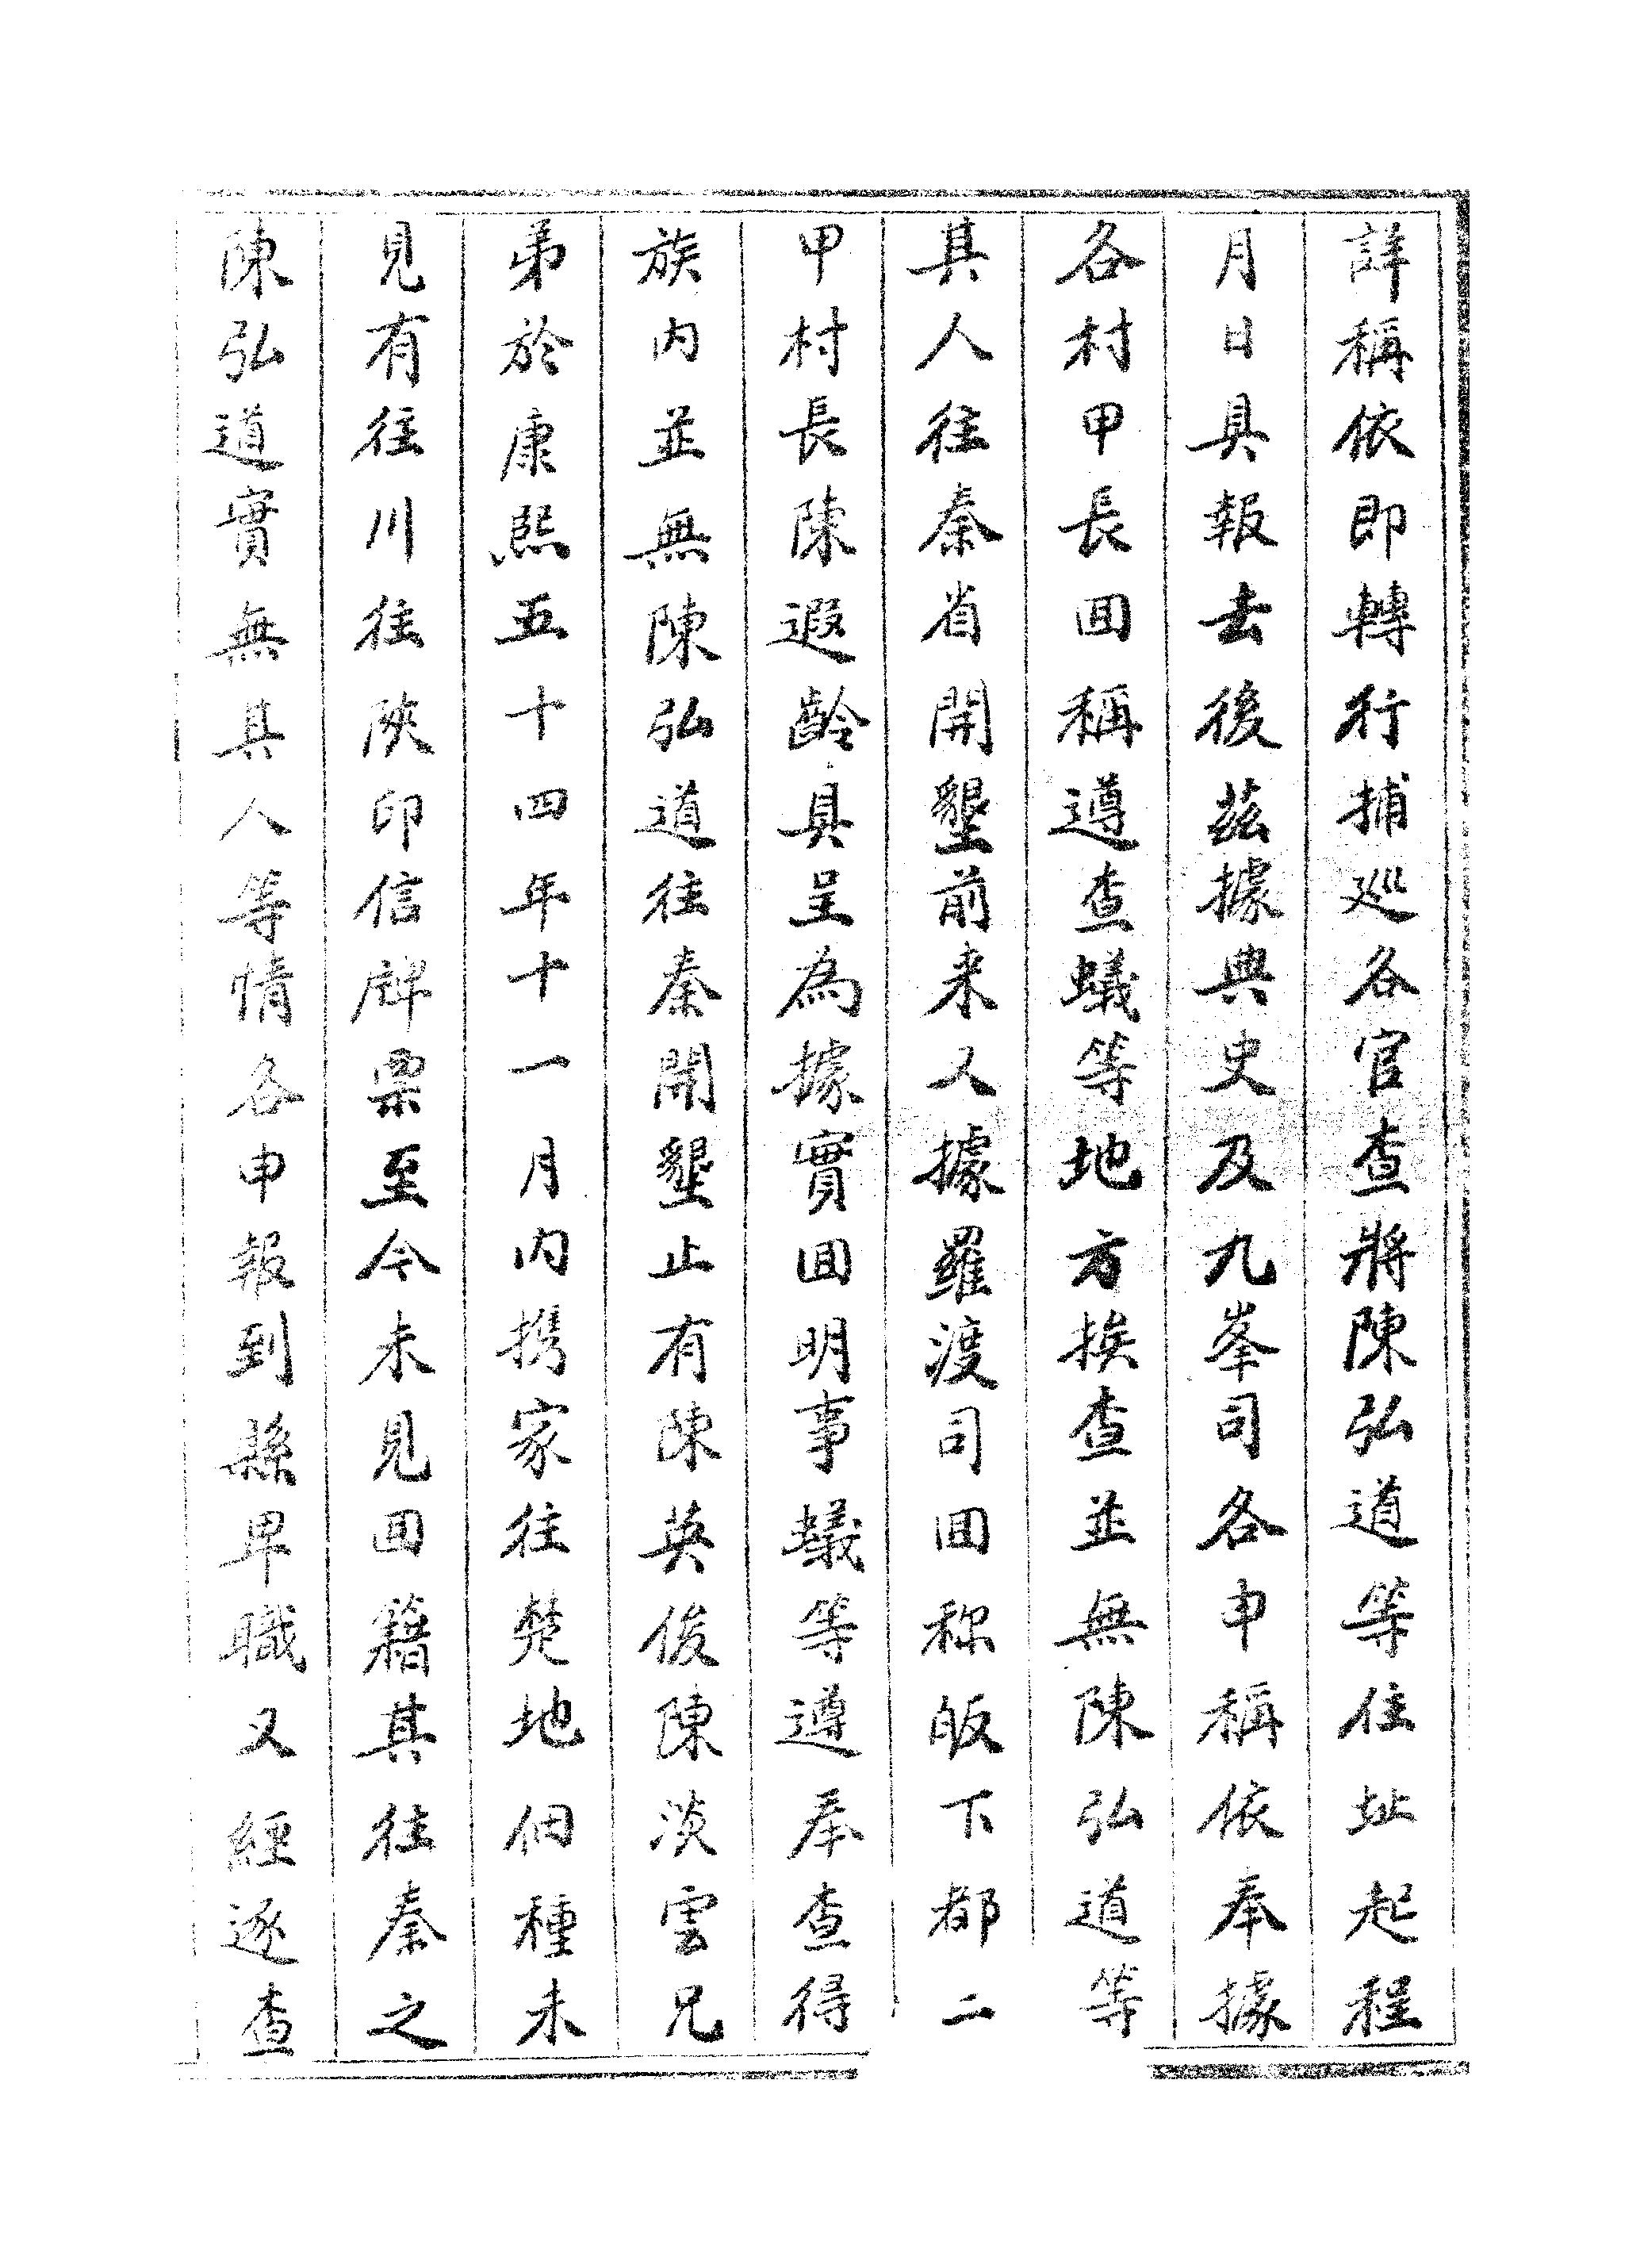 詳稱依即轉行捕廵各官查將陳弘道等住址起程
月日具報去後茲據典史及九峯司各申稱依奉據
各村甲長囬稱遵查蟻等地方挨查並無陳弘道等
其人往秦省開墾前来又據羅渡司囬称皈下都二
甲村長陳遐齡具呈為據實囬明事蟻等遵奉查得
族内並無陳弘道往秦開墾止有陳英俊陳淡雲兄
弟於康熙五十四年十一月内携家往楚地佃種未
見有往川往陝印信牌票至今未見囬籍其往秦之
陳弘道實無其人等情各申報到縣卑職又經逐查